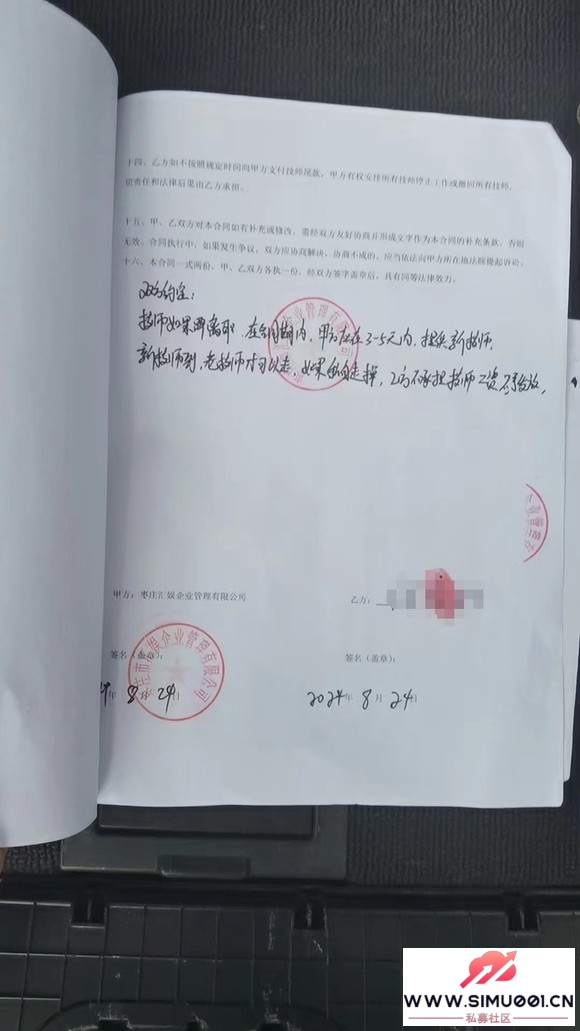 十四、乙方如不按照规定时间向甲方支付技师尾款，甲方有权安排所有技师停止工作或撤回所有技师，
责任和法律后果由乙方承担。
十五、甲、乙双方对本合同如有补充或修改，需经双方友好协商并形成文字作为本合同的补充条款，否则
无效。合同执行中，如果发生争议，双方应协商解决，协商不成的，应当依法向甲方所在地法院提起诉讼。
十六、本合同一式两份，甲、乙双方各执一份，经双方签字盖章后，具有同等法律效力。
双方约定：
技师如果要离职，在合同期内，甲方应在3-5天内，提供新技师，
新技师到，老技师才可以走，如果私自走掉，乙方不承担技师工资不予发放，
企业管理有限公司
甲方：枣庄汇娱企业管理有限公司
乙方：
签名（盖章）：
签名（盖章）：
枣庄市汇娱企业管理有限公司
年 8 月 24 日
2024 年 8 月 24 日
WWW.SIMU001.CN
私募社区